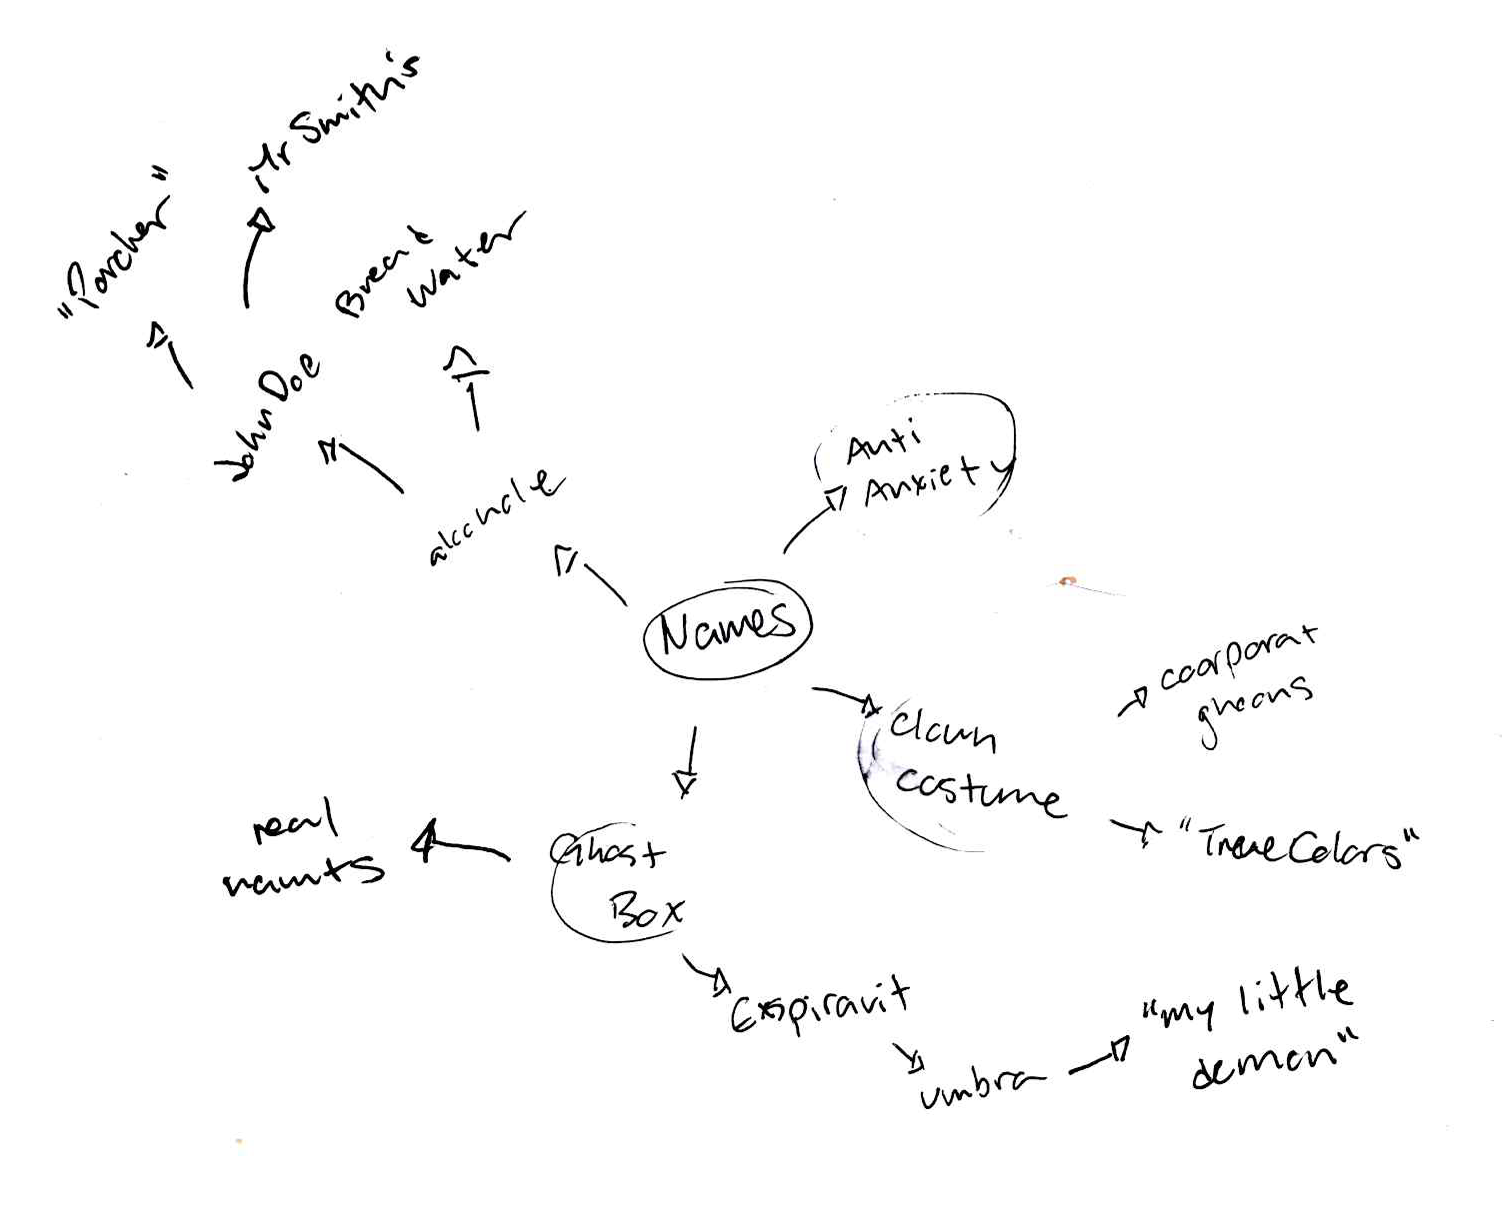 Mr Smith's
"Porcher"
Bread
Water
John Doe
alcohole
Anti
Anxiety
Names
coorporat
gheons
clown
costume
"True Colors"
real
Ghost
Box
Expiravit
umbra
"my little
demon"